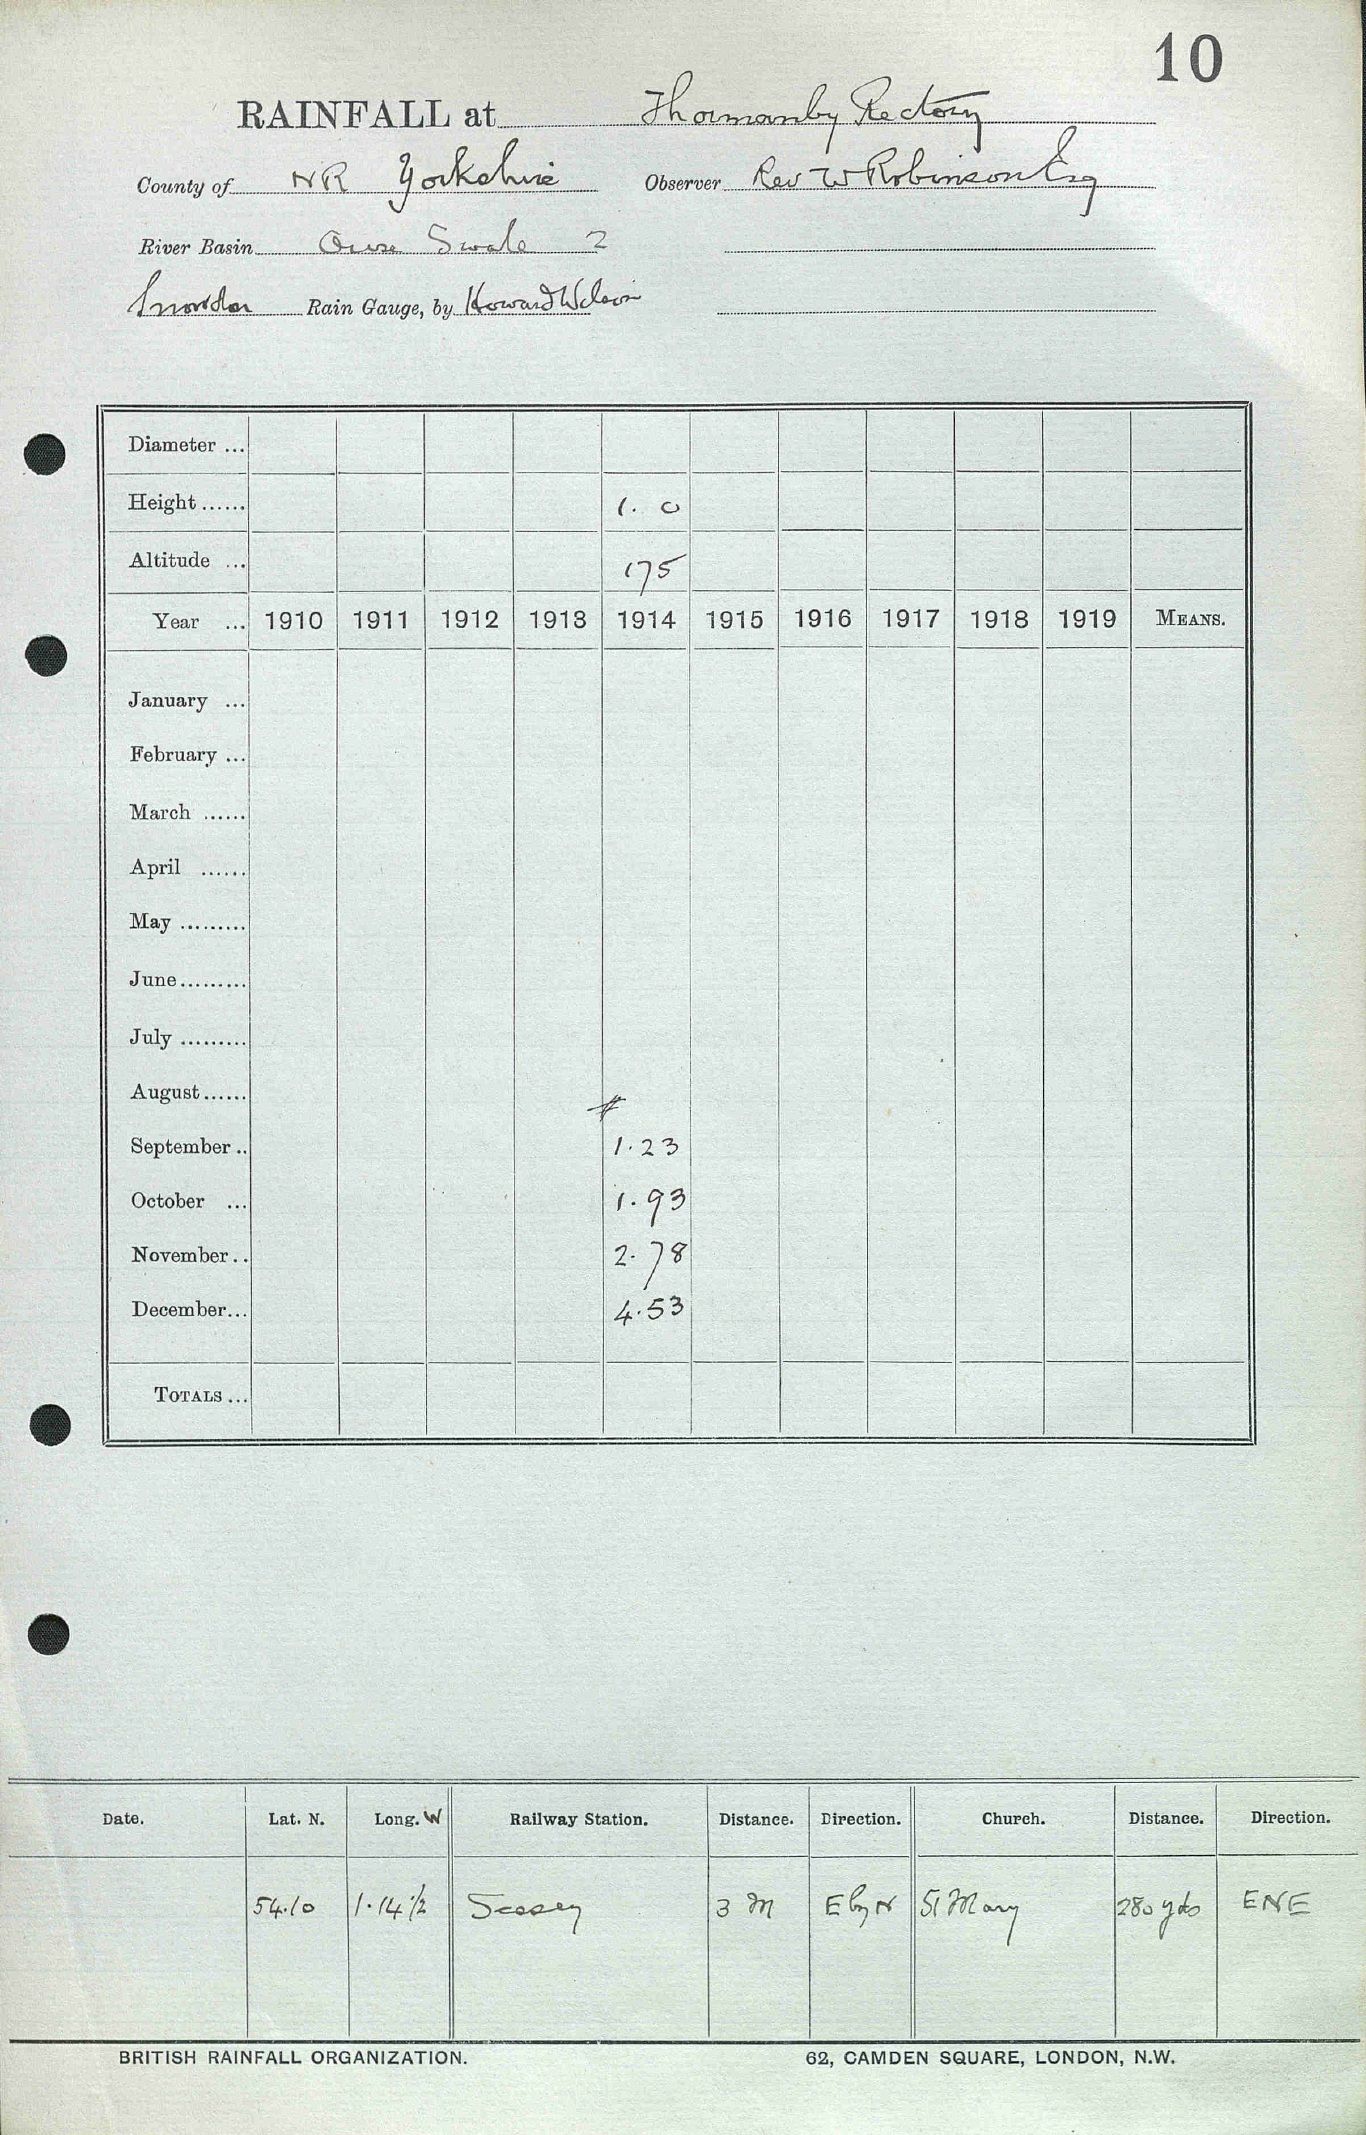 10
RAINFALL at Thormanby Rectory
County of NR Yorkshire Observer Rev W Robinson Esq
River Basin Ouse Swale 2
Snowdon Rain Gauge, by Howard Wilson
Diameter ...
Height ...... 1. 0
Altitude ... 175
Year ... 1910 1911 1912 1913 1914 1915 1916 1917 1918 1919 MEANS.
January ...
February ...
March ......
April ......
May .........
June .........
July .........
August ......
September .. 1.23
October ... 1.93
November .. 2.78
December ... 4.53
TOTALS ...
Date. Lat. N. Long. W Railway Station. Distance. Direction. Church. Distance. Direction.
54.10 1.14 1/2 Sessay 3 M E by N St Mary 280 yds ENE
BRITISH RAINFALL ORGANIZATION. 62, CAMDEN SQUARE, LONDON, N.W.